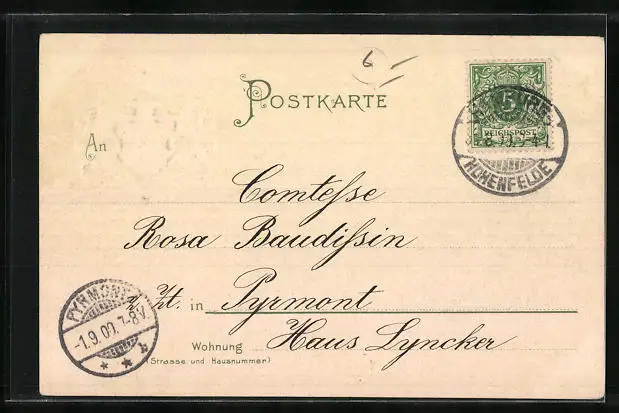 6
POSTKARTE
5
REICHSPOST
HOHENFELDE
An
Comteſse
Rosa Baudiſsin
z. Zt. in Pyrmont
PYRMONT
1.9.00. 7-8V.
Wohnung Haus Lyncker
(Strasse und Hausnummer)